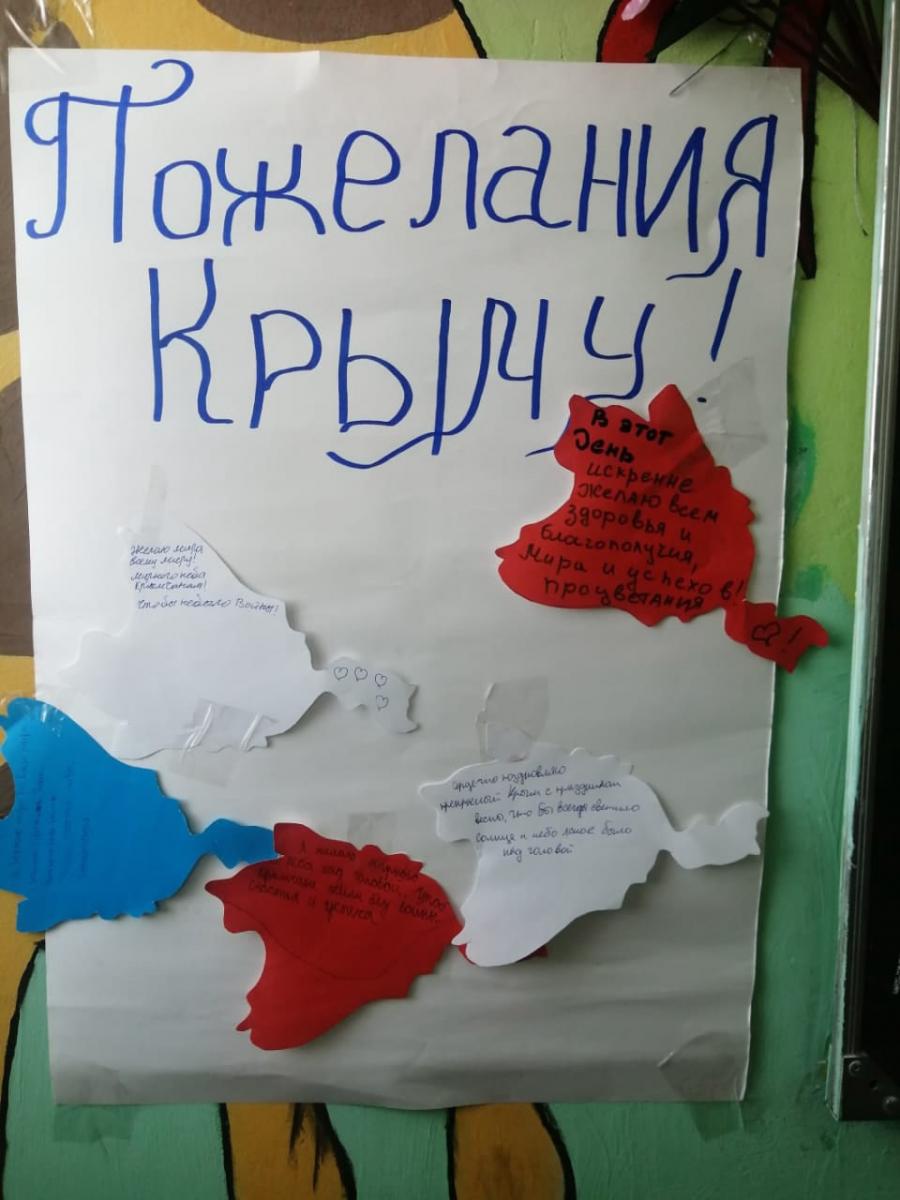 Пожелания
Крыму!
В этот
День
искренне
желаю всем
здоровья и
благополучия,
Мира и успехов!
процветания
!
Желаю мира
всему миру!
мирного неба
Крымчанам!
Чтобы небыло Войны!
сердечно поздравляю
прекрасной Крым с праздником
весно, что бы всегда светило
солнце и небо ясное было
над головой
Я желаю мирного
неба над головой, чтоб
крымчане жили без войны.
счастья и успеха